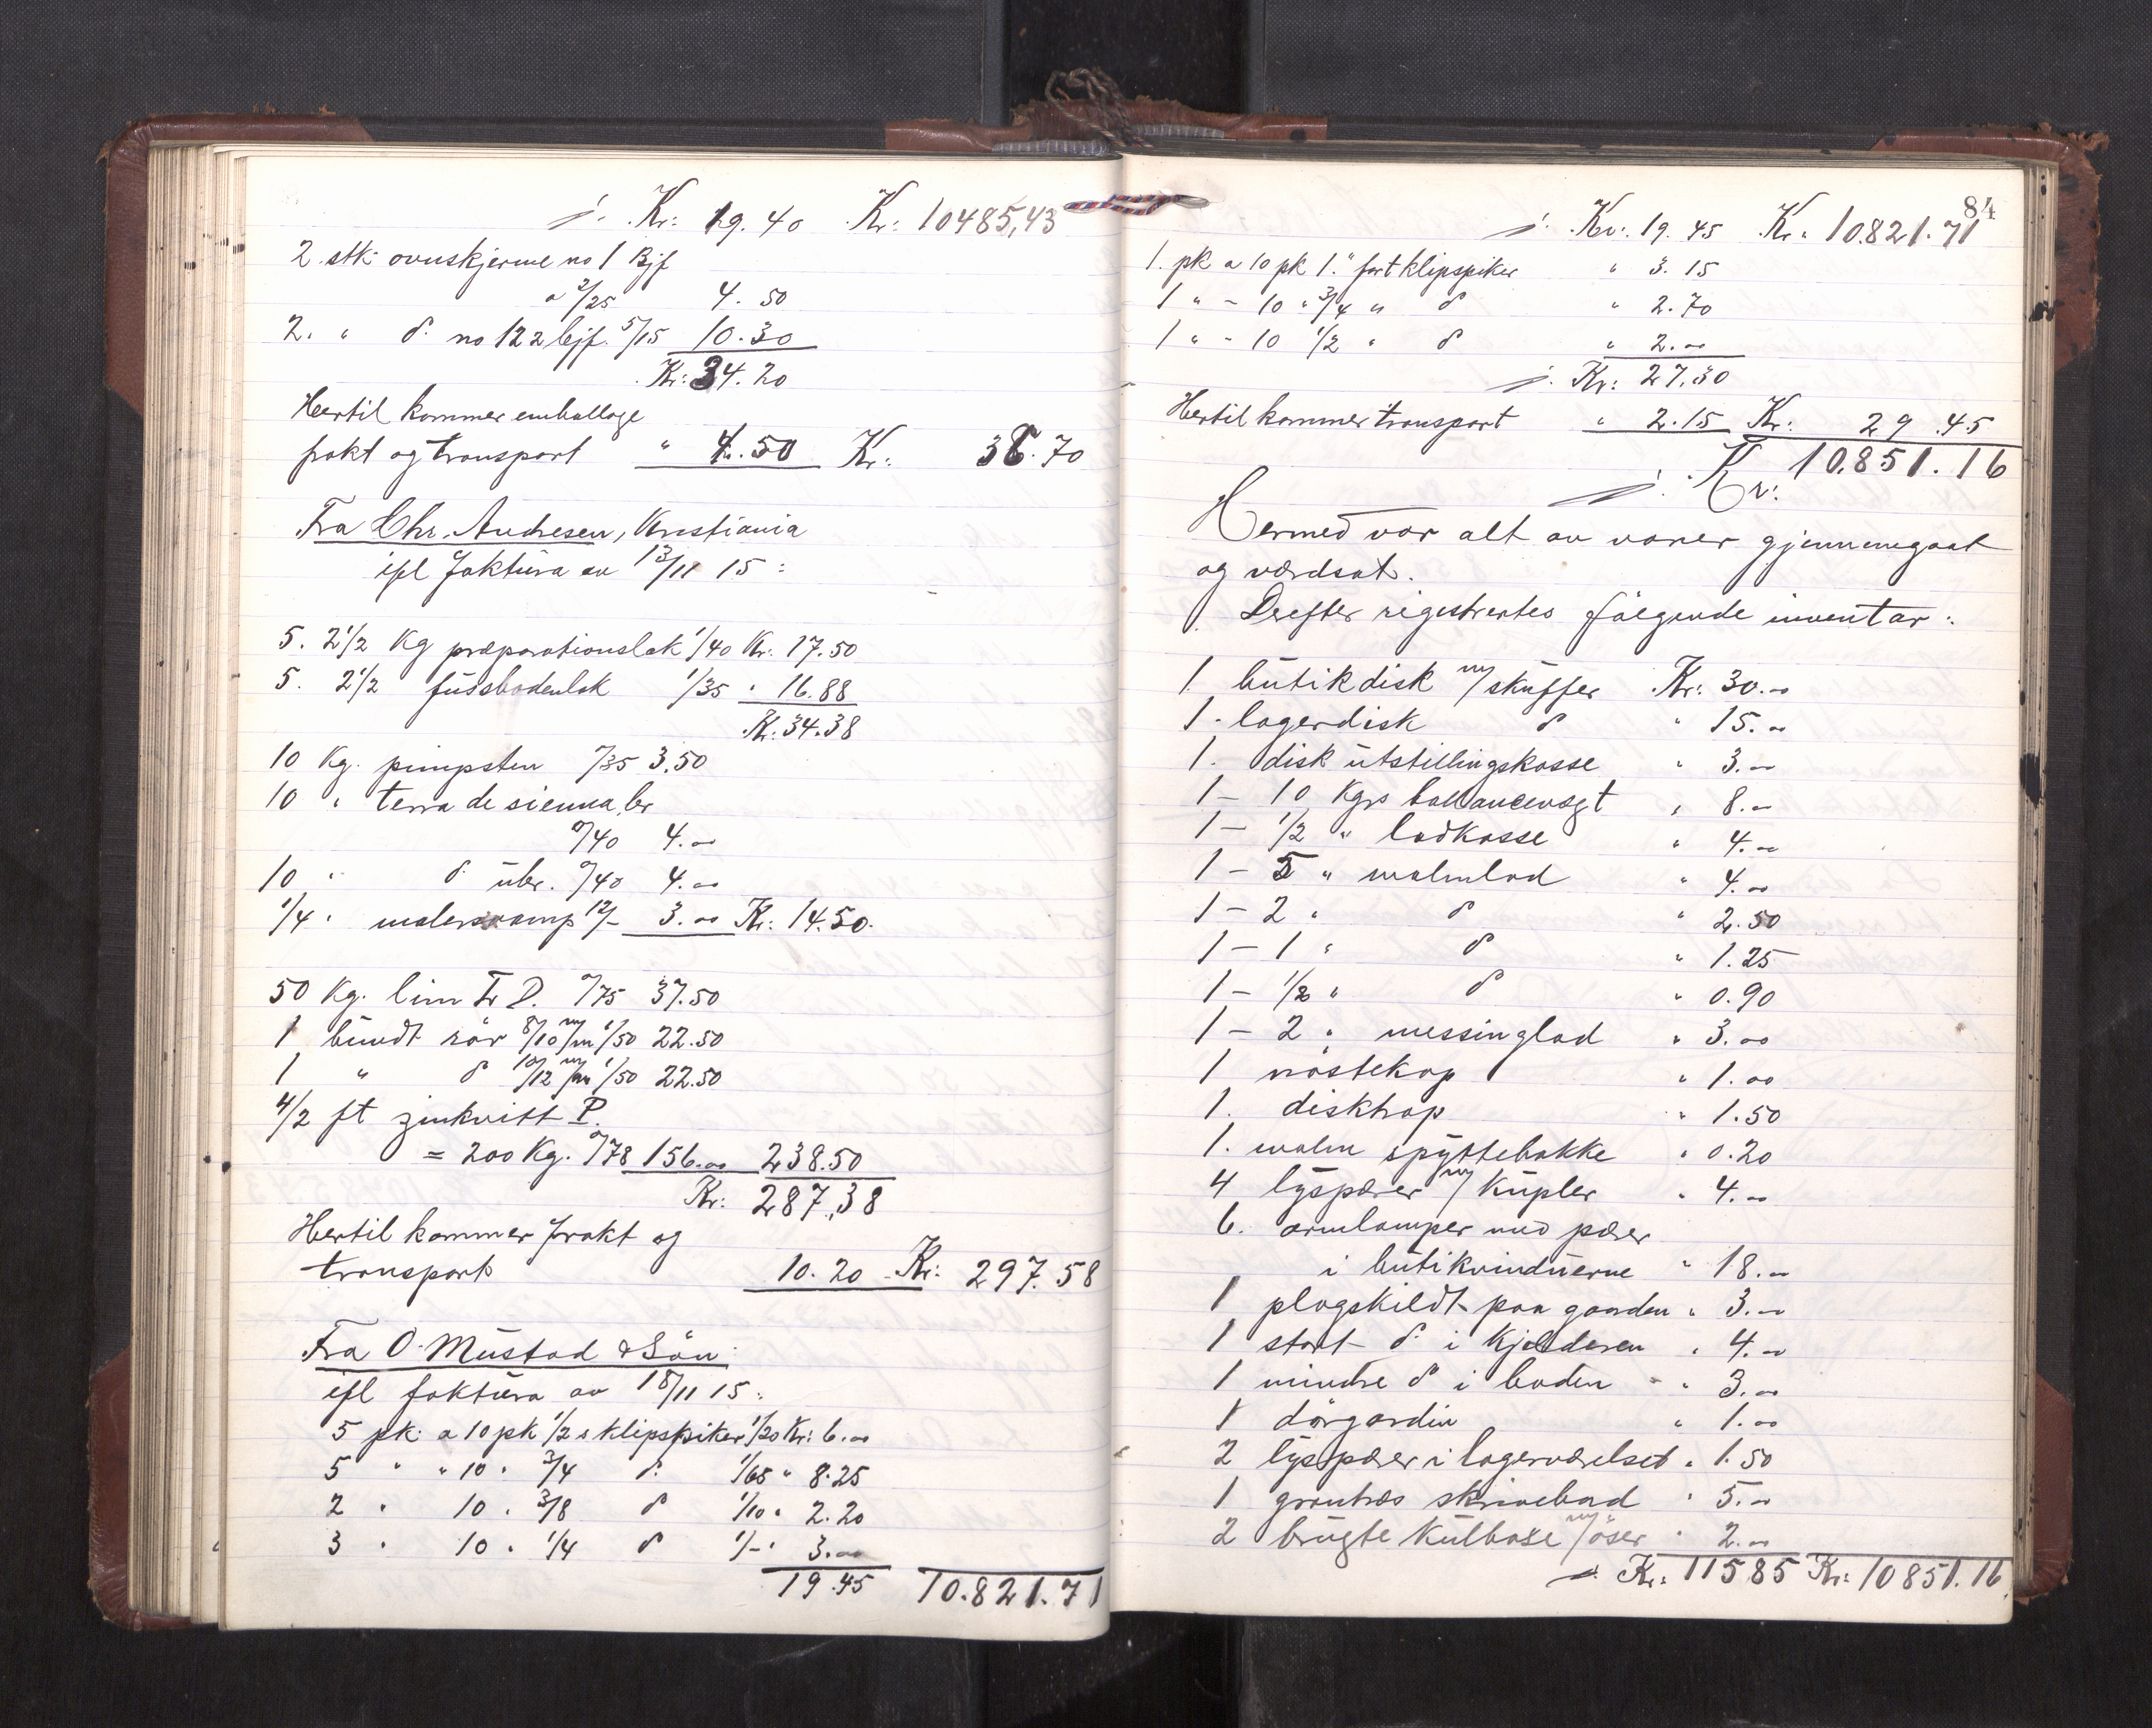 Kr: 19.40 Kr: 10485,43
2 stk. ovnskjerme no 1 Bjf
a 2/25 4.50
2. " d. no 122 bjf. 5/15 10.30
Kr: 34.20
Hertil kommer emballage
frakt og transport " 4.50 Kr: 38.70
Fra Chr. Andresen, Kristiania
ifl faktura av 13/11 15:
5. 2 1/2 Kg præparationslak 1/40 Kr. 17.50
5. 2 1/2 fussbodenlak 1/35 " 16.88
Kr. 34.38
10 Kg. pimpsten 0/35 3.50
10 " terra de sienna br
0/40 4.00
10 " d. übr. 0/40 4.00
1/4 " malersvamp 12/- 3.00 Kr: 14.50.
50 Kg. lim Fr D. 0/75 37.50
1 bundt rör 8/10 m/m 1/50 22.50
1 " d 10/12 m/m 1/50 22.50
4/2 ft zinkvitt P.
= 200 Kg. 0/78 156.00 238.50
Kr: 287,38
Hertil kommer frakt og
transport 10.20 Kr: 297.58
Fra O. Mustad & Sön
ifl faktura av 18/11 15:
5 pk. a 10 pk 1/2 s klipspiker 1/20 Kr: 6.00
5 " " 10 " 3/4 d. 1/65 " 8.25
2 " 10 " 3/8 d 1/10 " 2.20
3 " 10 " 1/4 d 1/- " 3.00
19.45 10.821.71
84
Kr. 19.45 Kr. 10.821.71
1. pk a 10 pk 1." fort klipspiker " 3.15
1 " - 10 " 3/4 " d " 2.70
1 " - 10 1/2 " d " 2.00
Kr: 27,30
Hertil kommer transport " 2.15 Kr: 29.45
Kr: 10.851.16
Hermed var alt av varer gjennemgaat
og værdsat.
Derefter rigestrertes fölgende inventar:
1 butikdisk m/skuffer Kr: 30.00
1. lagerdisk d " 15.00
1. disk utstillingskasse " 3.00
1 - 10 Kgs ballancevegt " 8.00
1 - 1/2 " lodkasse " 4.00
1 - 5 " malmlod " 4.00
1 - 2 " d " 2.50
1 - 1 " d " 1.25
1 - 1/2 " d " 0.90
1 - 2 " messinglod " 3.00
1 nöstekop " 1.00
1. disktrap " 1.50
1. malm spyttebakke " 0.20
4 lyspærer m/kupler " 4.00
6. armlamper med pærer
i butikvinduerne " 18.00
1 plagskildt paa gaarden " 3.00
1 stort d. i kjelderen " 4.00
1 mindre d i boden " 3.00
1 dörgardin " 1.00
2 lyspærer i lagerværelset " 1.50
1 grantræs skrivebord " 5.00
2 brugte kulboxe m/öser " 2.00
Kr: 11585 Kr: 10851.16